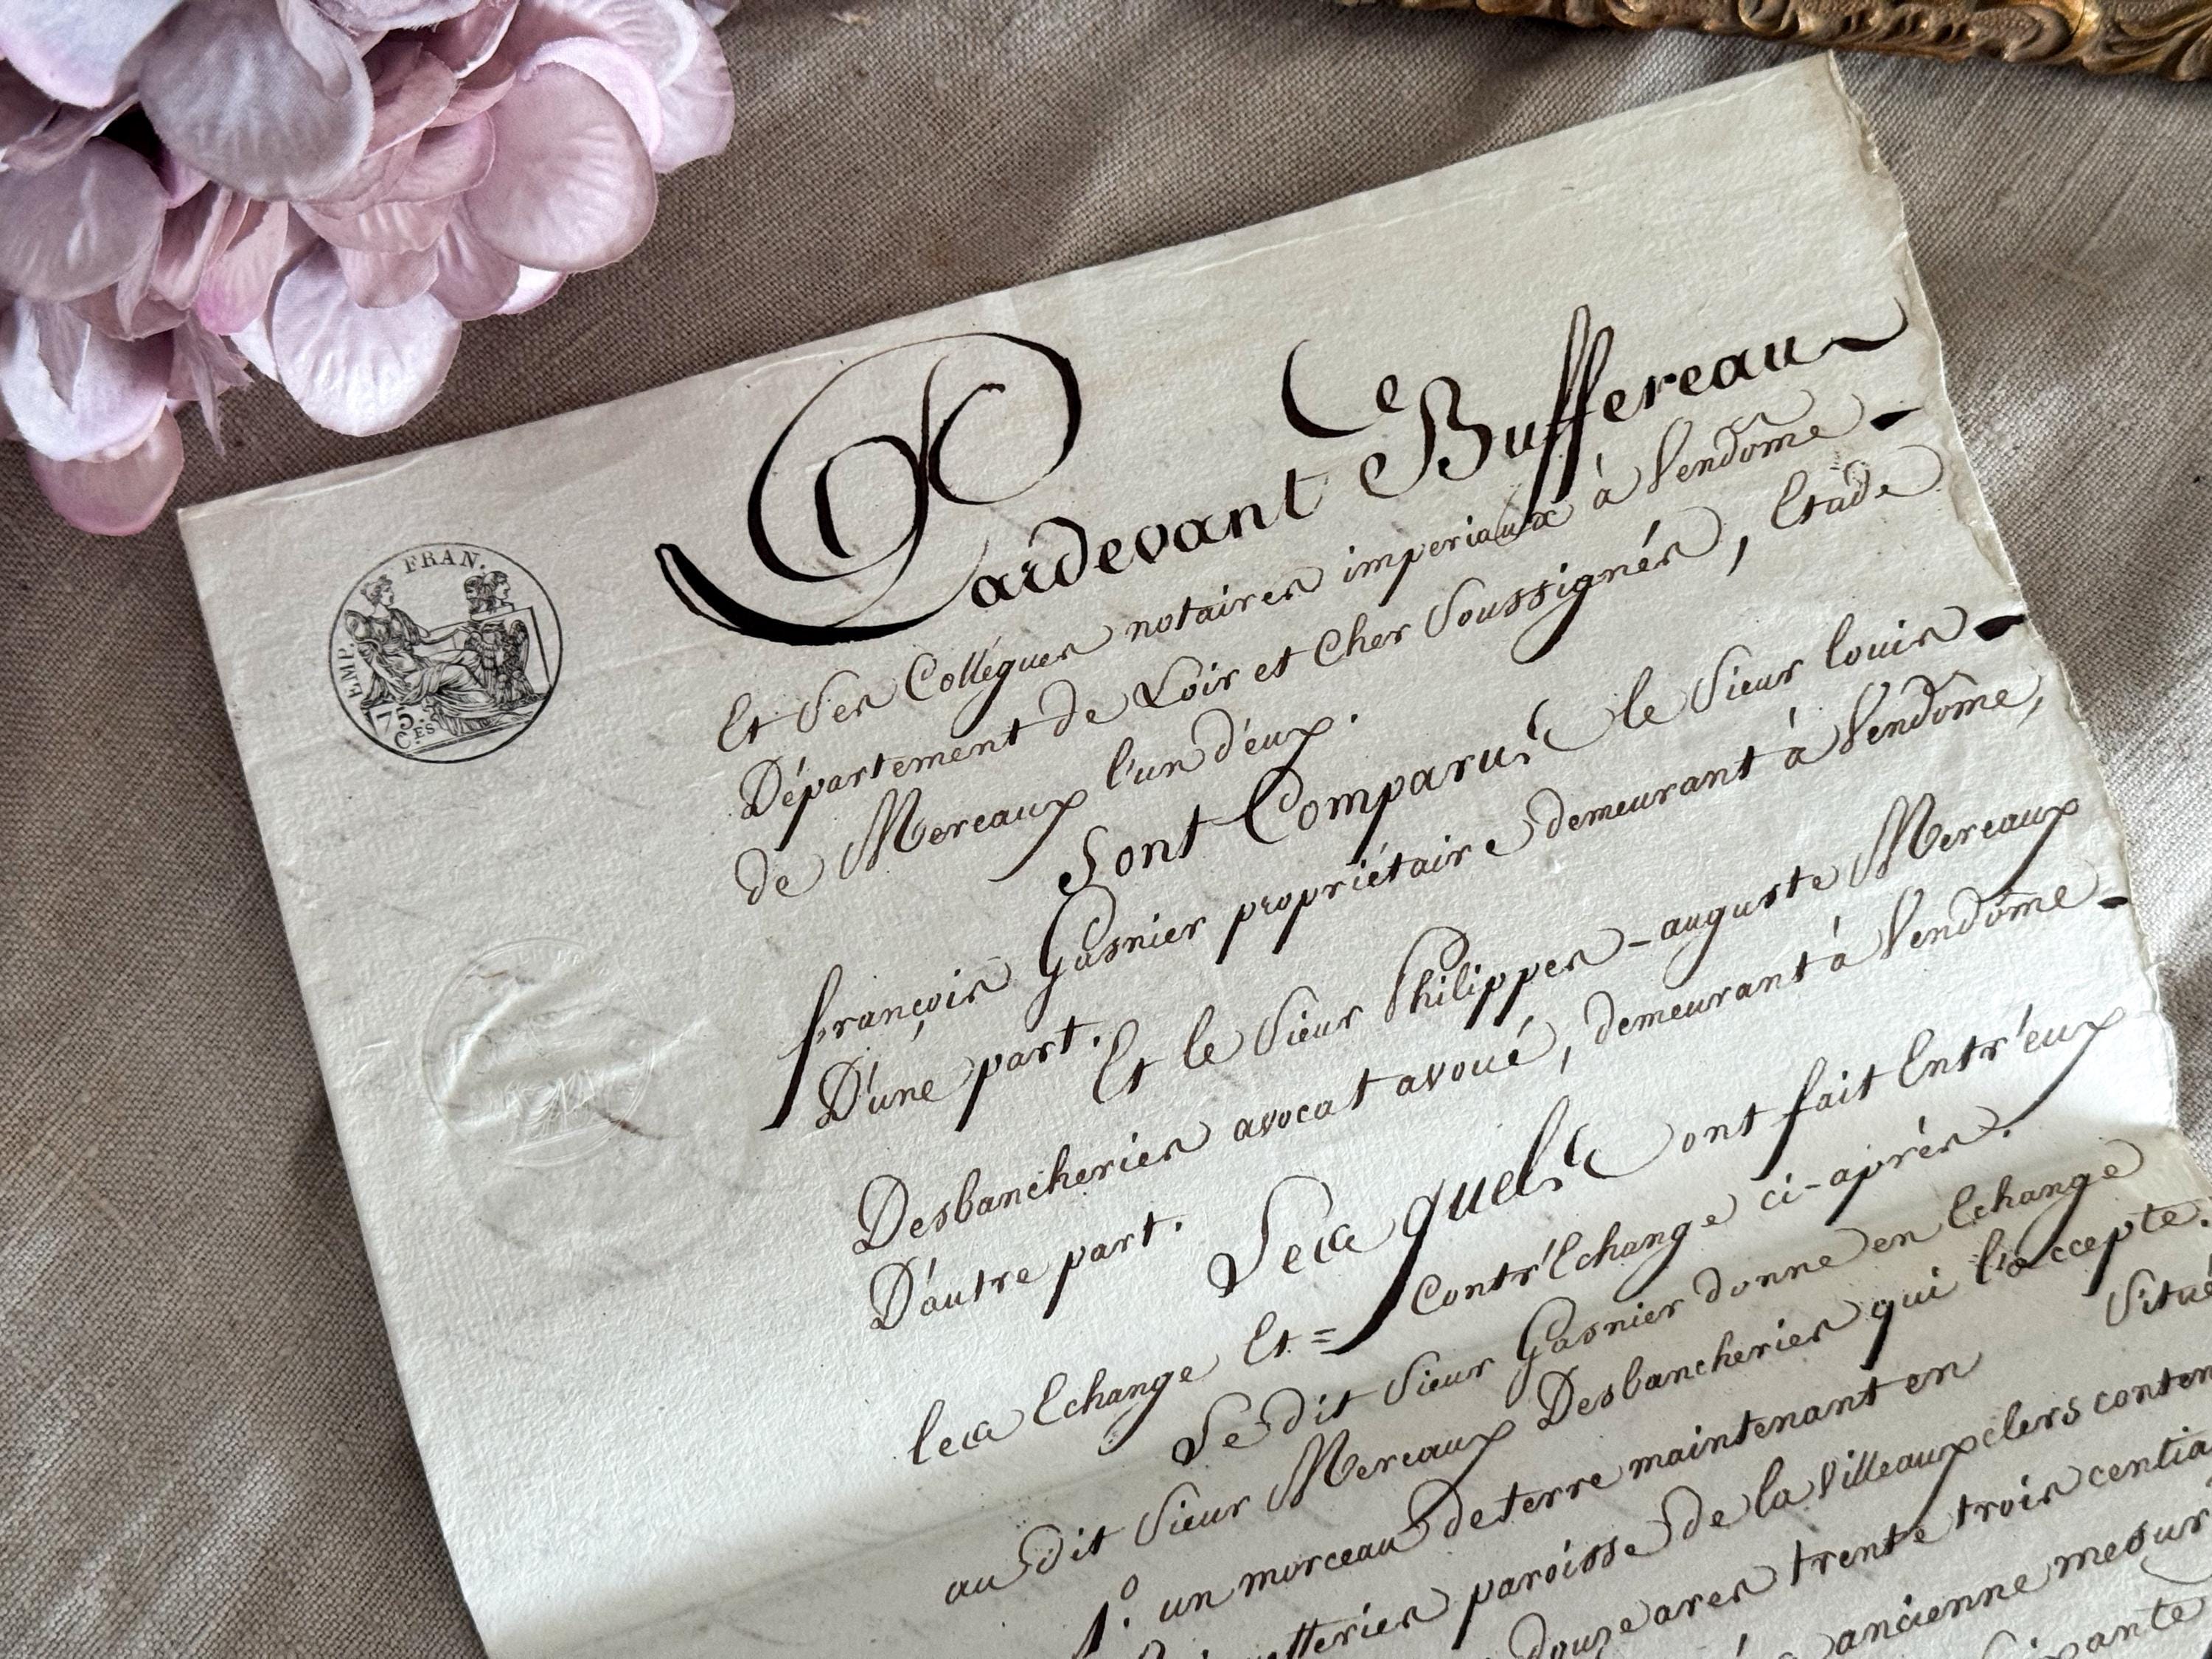 EMP. FRAN.
75.
C.ES
Pardevant Buffereau
Et Ses Collégues notaires imperiaux à Vendôme
Département de Loir et Cher Soussignés, Etude
de Mereaux l'un d'eux.
Sont Comparus le Sieur louis
françois Gasnier propriétaire demeurant à Vendôme,
D'une part.
Et le Sieur Philippes-auguste Mereaux
Desbancheries avocat avoué, demeurant à Vendôme
D'autre part.
Les quels ont fait Entr'eux
les Echange Et= Contr'Echange ci-après.
Le dit Sieur Gasnier donne en Echange
au dit Sieur Mereaux Desbancheries qui l'accepte.
1.º un morceau de terre maintenant en Situé
paroisse de la Villeauxclers conten
douze ares trente trois centia
ancienne mesur